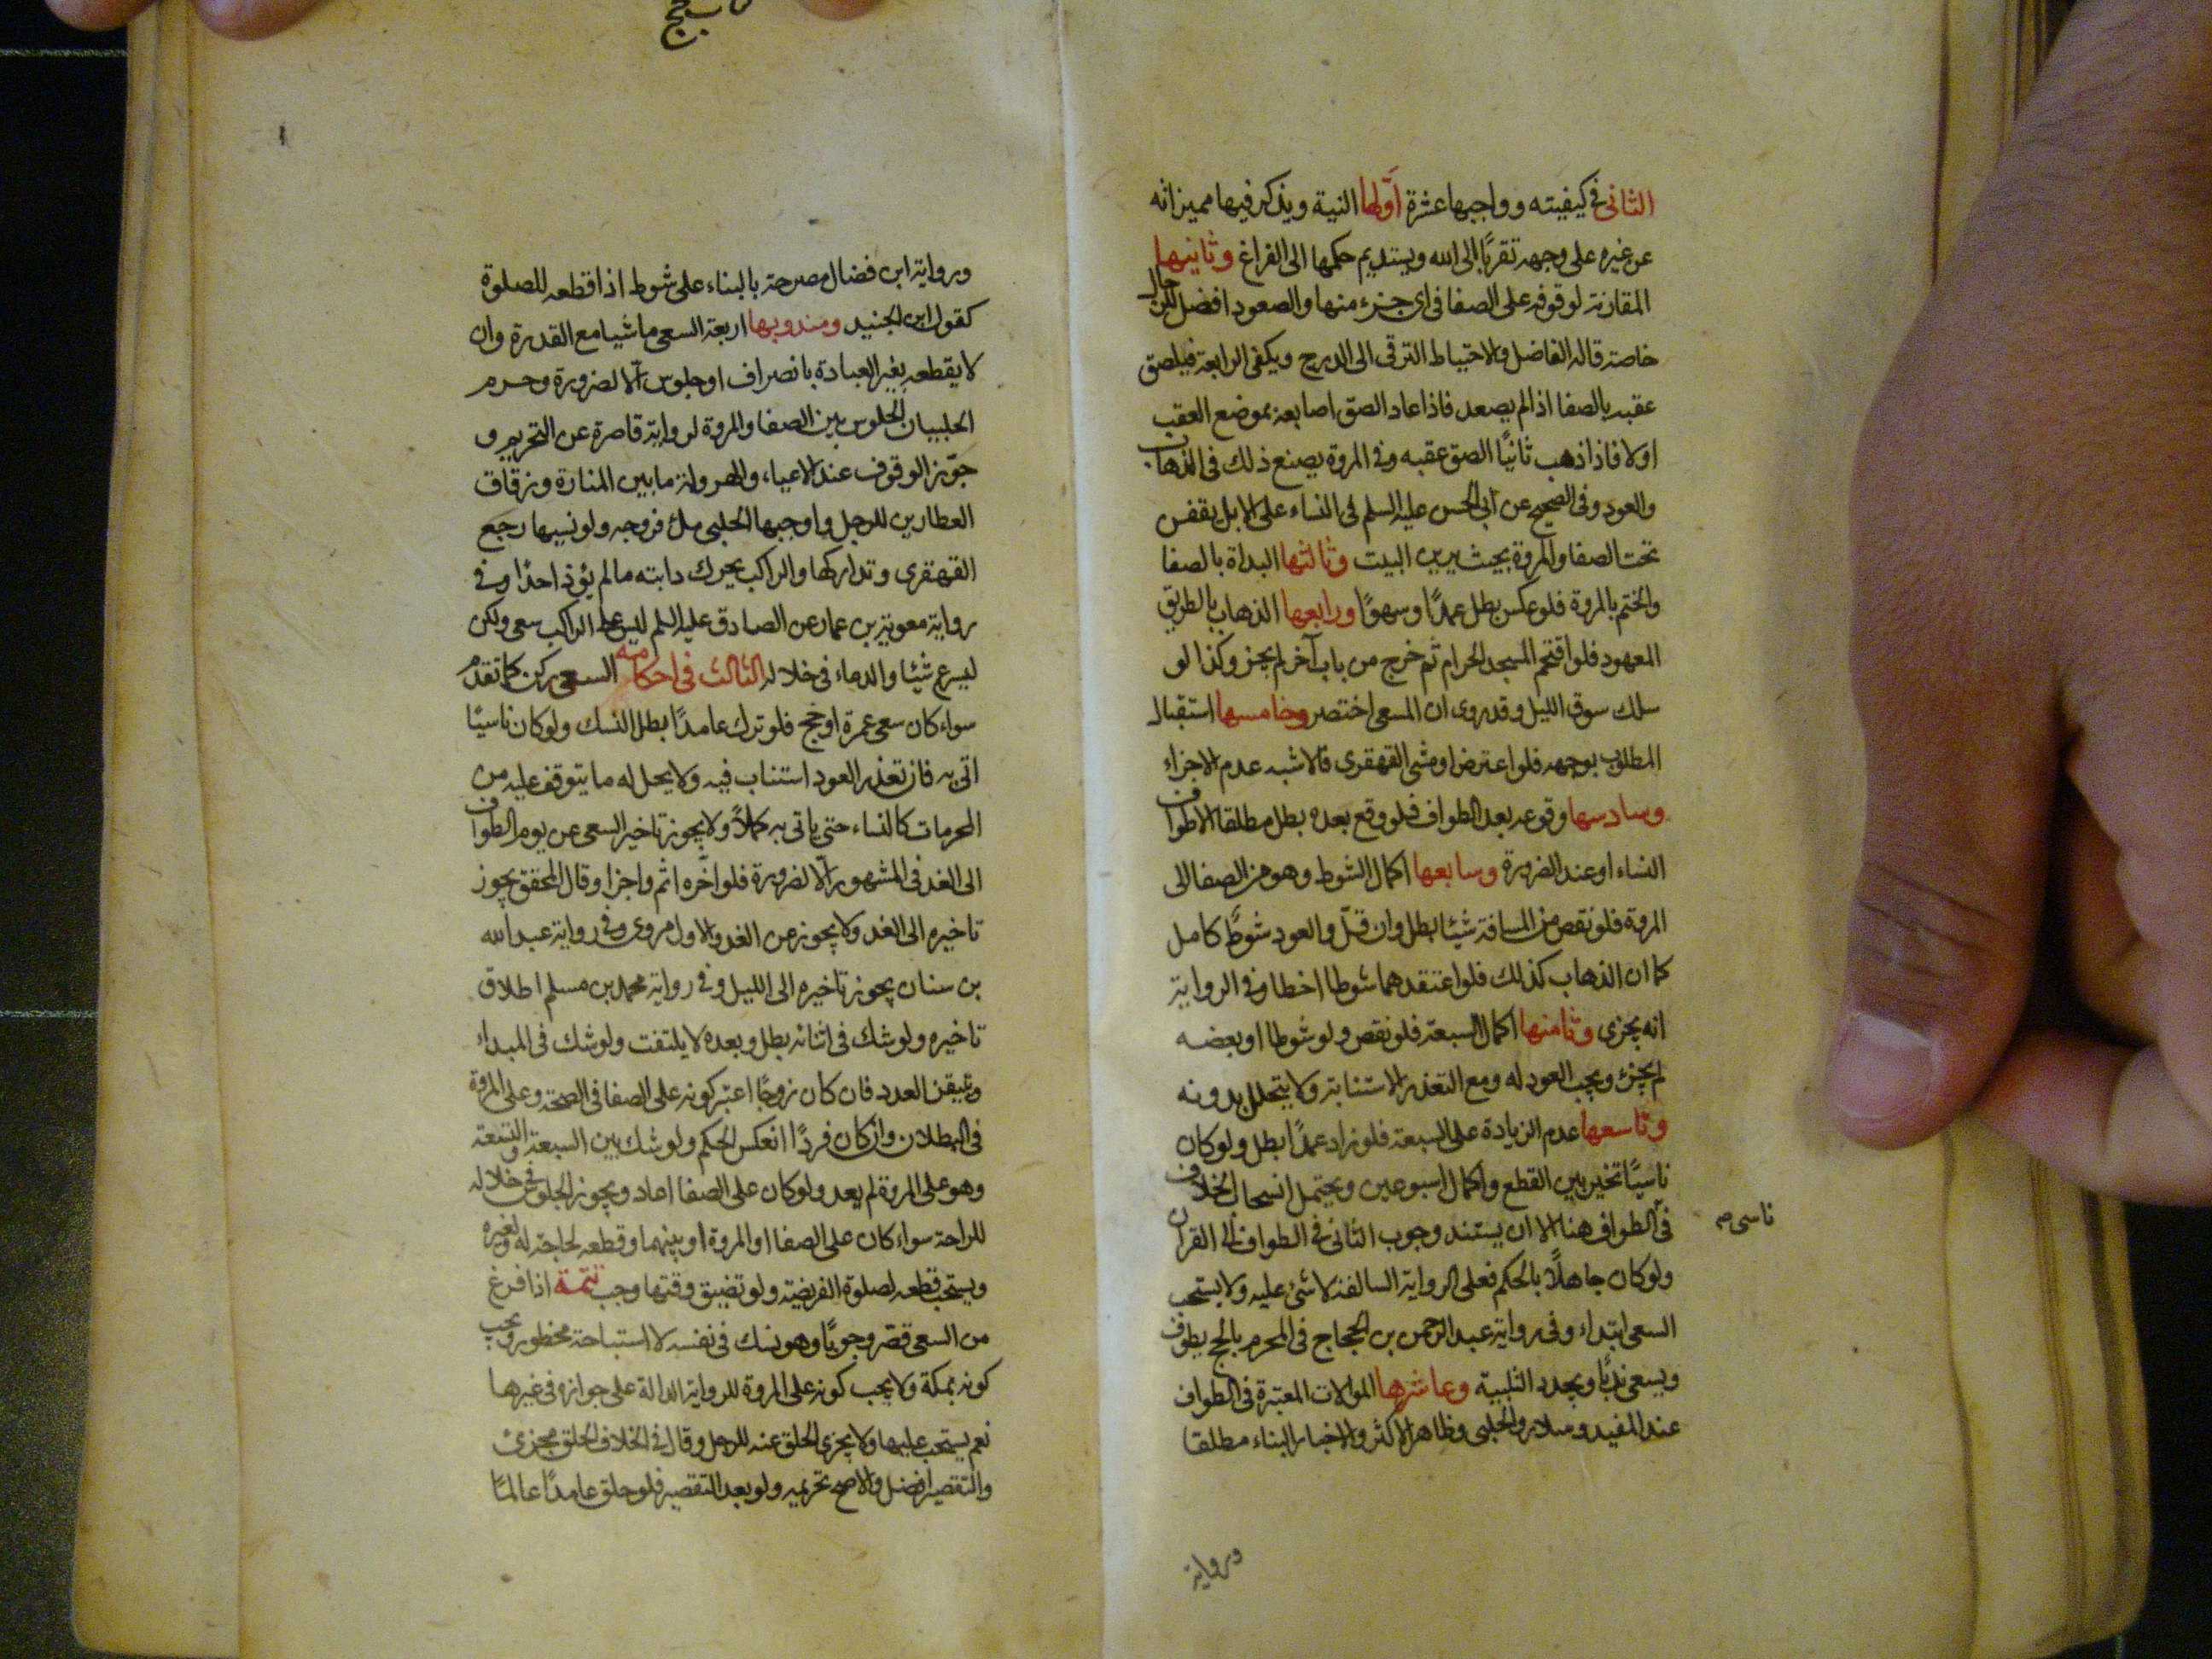 الثانى فى كيفيته وواجبها عشرة اولها النية ويذكر فيها مميزاته
عن غيره على وجهه تقربًا الى الله ويستديم حكمها الى الفراغ وثانيها
المقارنة لوقوفه على الصفا فى اى جزء منها والصعود افضل للرجال
خاصة قاله الفاضل والاحتياط الترقى الى الدرج ويكفى الرابعة فيلصق
عقبه بالصفا اذا لم يصعد فاذا عاد الصق اصابعه بموضع العقب
اولا فاذا ذهب ثانيًا الصق عقبه وفى المروة يصنع ذلك فى الذهاب
والعود وفى الصحيح عن ابى الحسن عليه السلم فى النساء على الابل يقفن
تحت الصفا والمروة بحيث يرين البيت وثالثها البداة بالصفا
والختم بالمروة فلو عكس بطل عمدًا وسهوًا ورابعها الذهاب بالطريق
المعهود فلو اقتحم المسجد الحرام ثم خرج من باب آخر لم يجز وكذا لو
سلك سوق الليل وقد روى ان المسعى اختصر وخامسها استقبال
المطلوب بوجهه فلو اعترض او مشى القهقرى فالاشبه عدم الاجزاء
وسادسها وقوعه بعد الطواف فلو وقع بعده بطل مطلقا الا طواف
النساء او عند الضرورة وسابعها اكمال الشوط وهو من الصفا الى
المروة فلو نقص من المسافة شيئا بطل وان قل والعود شوط كامل
كما ان الذهاب كذلك فلو اعتقدهما شوطا اخطا وفى الرواية
انه يجزى وثامنها اكمال السبعة فلو نقص ولو شوطا او بعضه
لم يجزئ ويجب العود له ومع التعذر الاستنابة ولا يتحلل بدونه
وتاسعها عدم الزيادة على السبعة فلو زاد عمدًا بطل ولو كان
ناسيًا تخير بين القطع واكمال اسبوعين ويحتمل انسحاب الخلاف
فى الطواف هنا الا ان يستند وجوب الثانى فى الطواف الى القران
ناسى م
ولو كان جاهلًا بالحكم فعلى الرواية السالفة لا شئ عليه ولا يستحب
السعى ابتداء وفى رواية عبد الرحمن بن الحجاج فى المحرم بالحج يطوف
ويسعى ندبًا ويجدد التلبية وعاشرها الموالات المعتبرة فى الطواف
عند المفيد وسلار والحلبى وظاهر الاكثر والاخبار البناء مطلقا
ورواية
ورواية ابن فضال مصرحة بالبناء على شوط اذا قطعه للصلوة
كقول ابن الجنيد ومندوبها اربعة السعى ماشيا مع القدرة وان
لا يقطعه بغير العبادة بانصراف او جلوس الا لضرورة وحرم
الحلبيان الجلوس بين الصفا والمروة لرواية قاصرة عن التحريم و
جوز الوقوف عند الاعياء والهرولة ما بين المنارة وزقاق
العطارين للرجل واوجبها الحلبى ملأ فروجه ولو نسيها رجع
القهقرى وتداركها والراكب يحرك دابته ما لم يؤذ احدًا وفى
رواية معوية بن عمار عن الصادق عليه السلم ليس على الراكب سعى ولكن
ليسرع شيئا والدعاء فى خلاله الثالث فى احكامه السعى ركن كما تقدم
سواء كان سعى عمرة او حج فلو ترك عامدًا بطل النسك ولو كان ناسيًا
اتى به فان تعذر العود استناب فيه ولا يحل له ما يتوقف عليه من
المحرمات كالنساء حتى ياتى به كملًا ولا يجوز تاخير السعى عن يوم الطواف
الى الغد فى المشهور الا لضرورة فلو اخره اثم واجزا وقال المحقق يجوز
تاخيره الى الغد ولا يجوز عن الغد والاول مروى وفى رواية عبد الله
بن سنان يجوز تاخيره الى الليل وفى رواية محمد بن مسلم اطلاق
تاخيره ولو شك فى اثنائه بطل وبعده لا يلتفت ولو شك فى المبداء
وتيقن العدد فان كان زوجًا اعتبر كونه على الصفا فى الصحة وعلى المروة
فى البطلان وان كان فردًا انعكس الحكم ولو شك بين السبعة والتسعة
وهو على المروة لم يعد ولو كان على الصفا اعاد ويجوز الجلوس فى خلاله
للراحة سواء كان على الصفا او المروة او بينهما وقطعه لحاجة له ولغيره
ويستحب قطعه لصلوة الفريضة ولو تضيق وقتها وجب تتمة اذا فرغ
من السعى قصر وجوبًا وهو نسك فى نفسه لا استباحة محظور ويجب
كونه بمكة ولا يجب كونه على المروة للرواية الدالة على جوازه فى غيرها
نعم يستحب عليها ولا يجزى الحلق عنه للرجل وقال فى الخلاف الحلق مجزئ
والتقصير افضل والاصح تحريمه ولو بعد التقصير فلو حلق عامدًا عالمًا